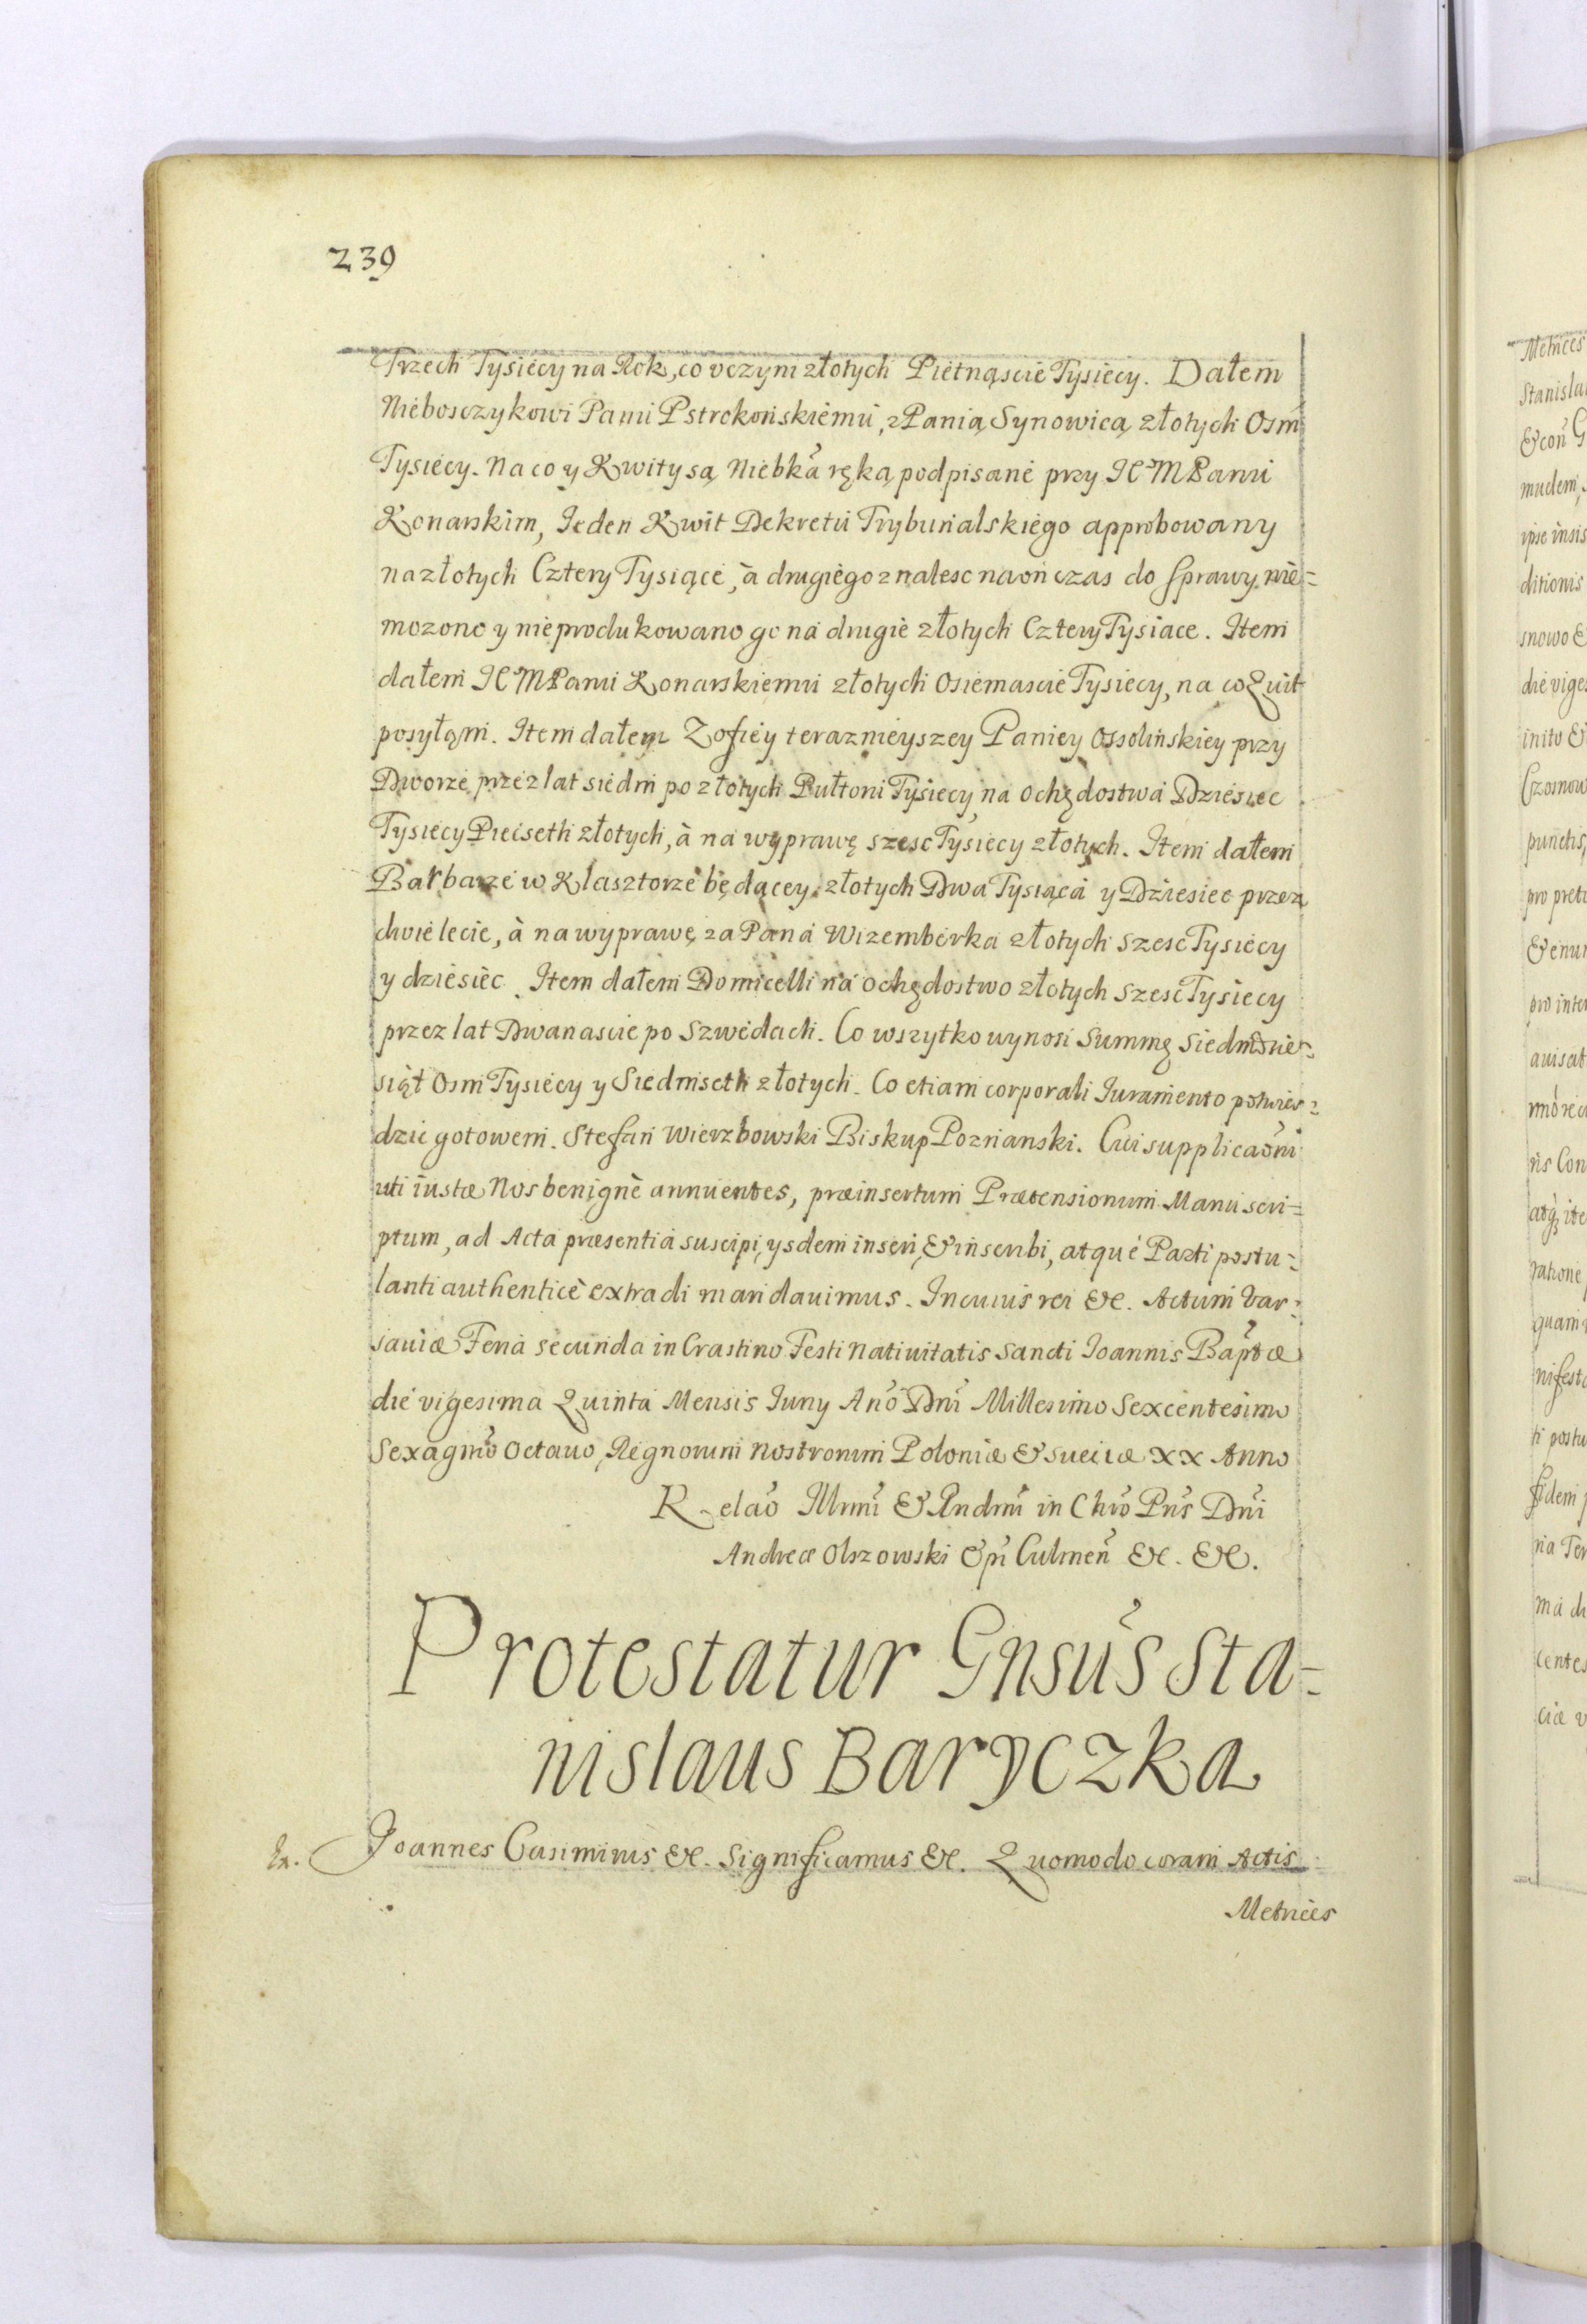 239
Trzech Tysiecy na Rok, co vczyni złotych Piętnąscie Tysiecy. Dałem
Nieboszczykowi Panu Pstrokońskiemu, z Panią Synowicą złotych Osm
Tysiecy. Na co y Kwity są Niebka ręką podpisane przy JCM Panu
Konarskim, Jeden Kwit Dekretu Trybunalskiego approbowany
na złotych Cztery Tysiące, à drugiego znalesc na on czas do sprawy nie=
mozono y nie produkowano go na drugie złotych Cztery Tysiace. Item
dałem JCM Panu Konarskiemu złotych Osiemascie Tysiecy, na co Quit
posyłąm. Item dałem Zofiey teraznieyszey Paniey Ossolińskiey przy
Dworze przez lat siedm po złotych Pułtoni Tysiecy na ochędostwa Dziesiec
Tysiecy Piecseth złotych, à na wyprawę szesc Tysiecy złotych. Item dałem
Barbarze w Klasztorze będącey złotych Dwa Tysiąca y Dziesiec przez
dwie lecie, à na wyprawę za Pana Wizemberka złotych szesc Tysiecy
y dziesiec. Item dałem Domicelli na ochędostwo złotych szesc Tysiecy
przez lat Dwanascie po Szwedach. Co wszytko wynosi Summę Siedmdzie=
siąt Osm Tysiecy y Siedmseth złotych. Co etiam corporali Juramento potwier=
dzic gotowem. Stefan Wierzbowski Biskup Poznanski. Cui supplicaõni
uti iustæ Nos benignè annuentes, præinsertum Prætensionum Manuscri=
ptum, ad Acta præsentia suscipi, ysdem inseri, & inscribi, atque Parti postu=
lanti authenticè extradi mandauimus. In cuius rei &c. Actum Var=
sauiæ Feria secunda in Crastino Festi Natiuitatis Sancti Joannis Baptæ
die vigesima Quinta Mensis Juny Ano Dni Millesimo Sexcentesimo
Sexagmo Octauo, Regnorum Nostrorum Poloniæ & Sueciæ XX Anno
Relao Illmi & Rndmi in Chro Pris Dni
Andreæ Olszowski Epi Culmen &c. &c.
Protestatur Gnsus Sta=
nislaus Baryczka
Joannes Casimirus &c. Significamus &c. Quomodo coram Actis
Metrices